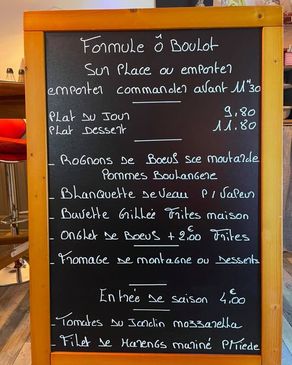 Formule ô Boulot
Sur Place ou emporter
emporter commander avant 11"30
Plat du Jour 9,80
Plat Dessert 11.80
- Rognons de Boeuf sce moutarde
Pommes Boulangere
- Blanquette de Veau P/Vapeur
- Bavette Grillée Frites maison
- Onglet de Boeuf + 2.00€ Frites
- Fromage de montagne ou Desserts
Entrée de saison 4.00€
- Tomates du Jardin mozzarella
- Filet de Harengs mariné P/Tiède